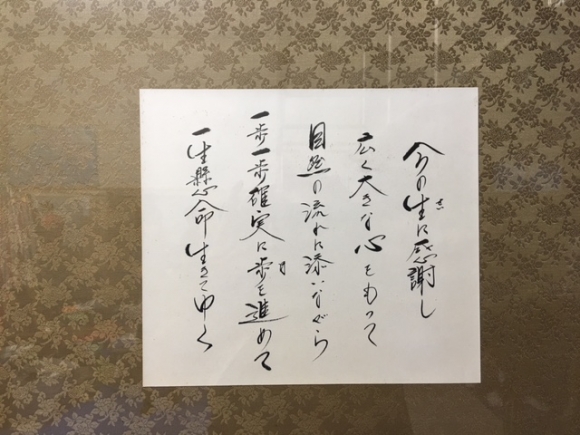 今の生に感謝し
広く大きな心をもって
自然の流れに添いながら
一歩一歩確実に歩を進めて
一生懸命生きてゆく